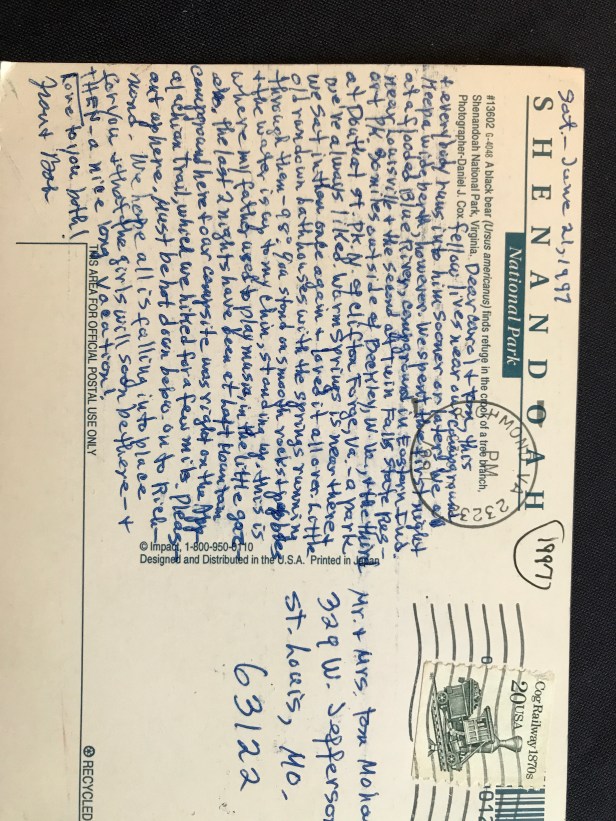 Sat - June 21, 1997
SHENANDOAH
National Park
(1997)
#13602 C-4048 A black bear (Ursus americanus) finds refuge in the crook of a tree branch,
Shenandoah National Park, Virginia.
Photographer-Daniel J. Cox
RICHMOND VA
PM
2323
Cog Railway 1870s
20 USA
Dear Carol + Tom, this
fellow lives near our campground
+ everybody runs into him sooner or later. We
keep a wide berth, however. We spent the first night
at a flooded Blue River campground in Eastern Ind.
near Louisville + the second at Twin Falls State Res-
ort Pk. 30 miles outside of Beckley, W. Va. + the third
at Douthat St. Pk. N. of Clifton Forge, Va. - a park
we've always liked. Warm Springs is near there +
we sat in them once again + loved it all over. Little
old rundown bathhouses with the springs running
through them - 98° you stand on smooth rocks + pebbles
+ the water is up to my chin, standing up. This is
where my father used to play music in the little gazebo
the last 2 nights have been at Loft Mountain
campground here + our campsite was right on the App-
alachian trail, which we hiked for a few miles. Pleas-
ant up here, must be hot down below. On to Rich-
mond. We hope all is falling into place
for you + that the girls will soon be there - +
THEN - a nice long vacation!
Love to you both!
THIS AREA FOR OFFICIAL POSTAL USE ONLY
© Impact, 1-800-950-0110
Designed and Distributed in the U.S.A. Printed in Japan
Mr. + Mrs. Tom
329 W. Jefferson
St. Louis, Mo.
63122
RECYCLED